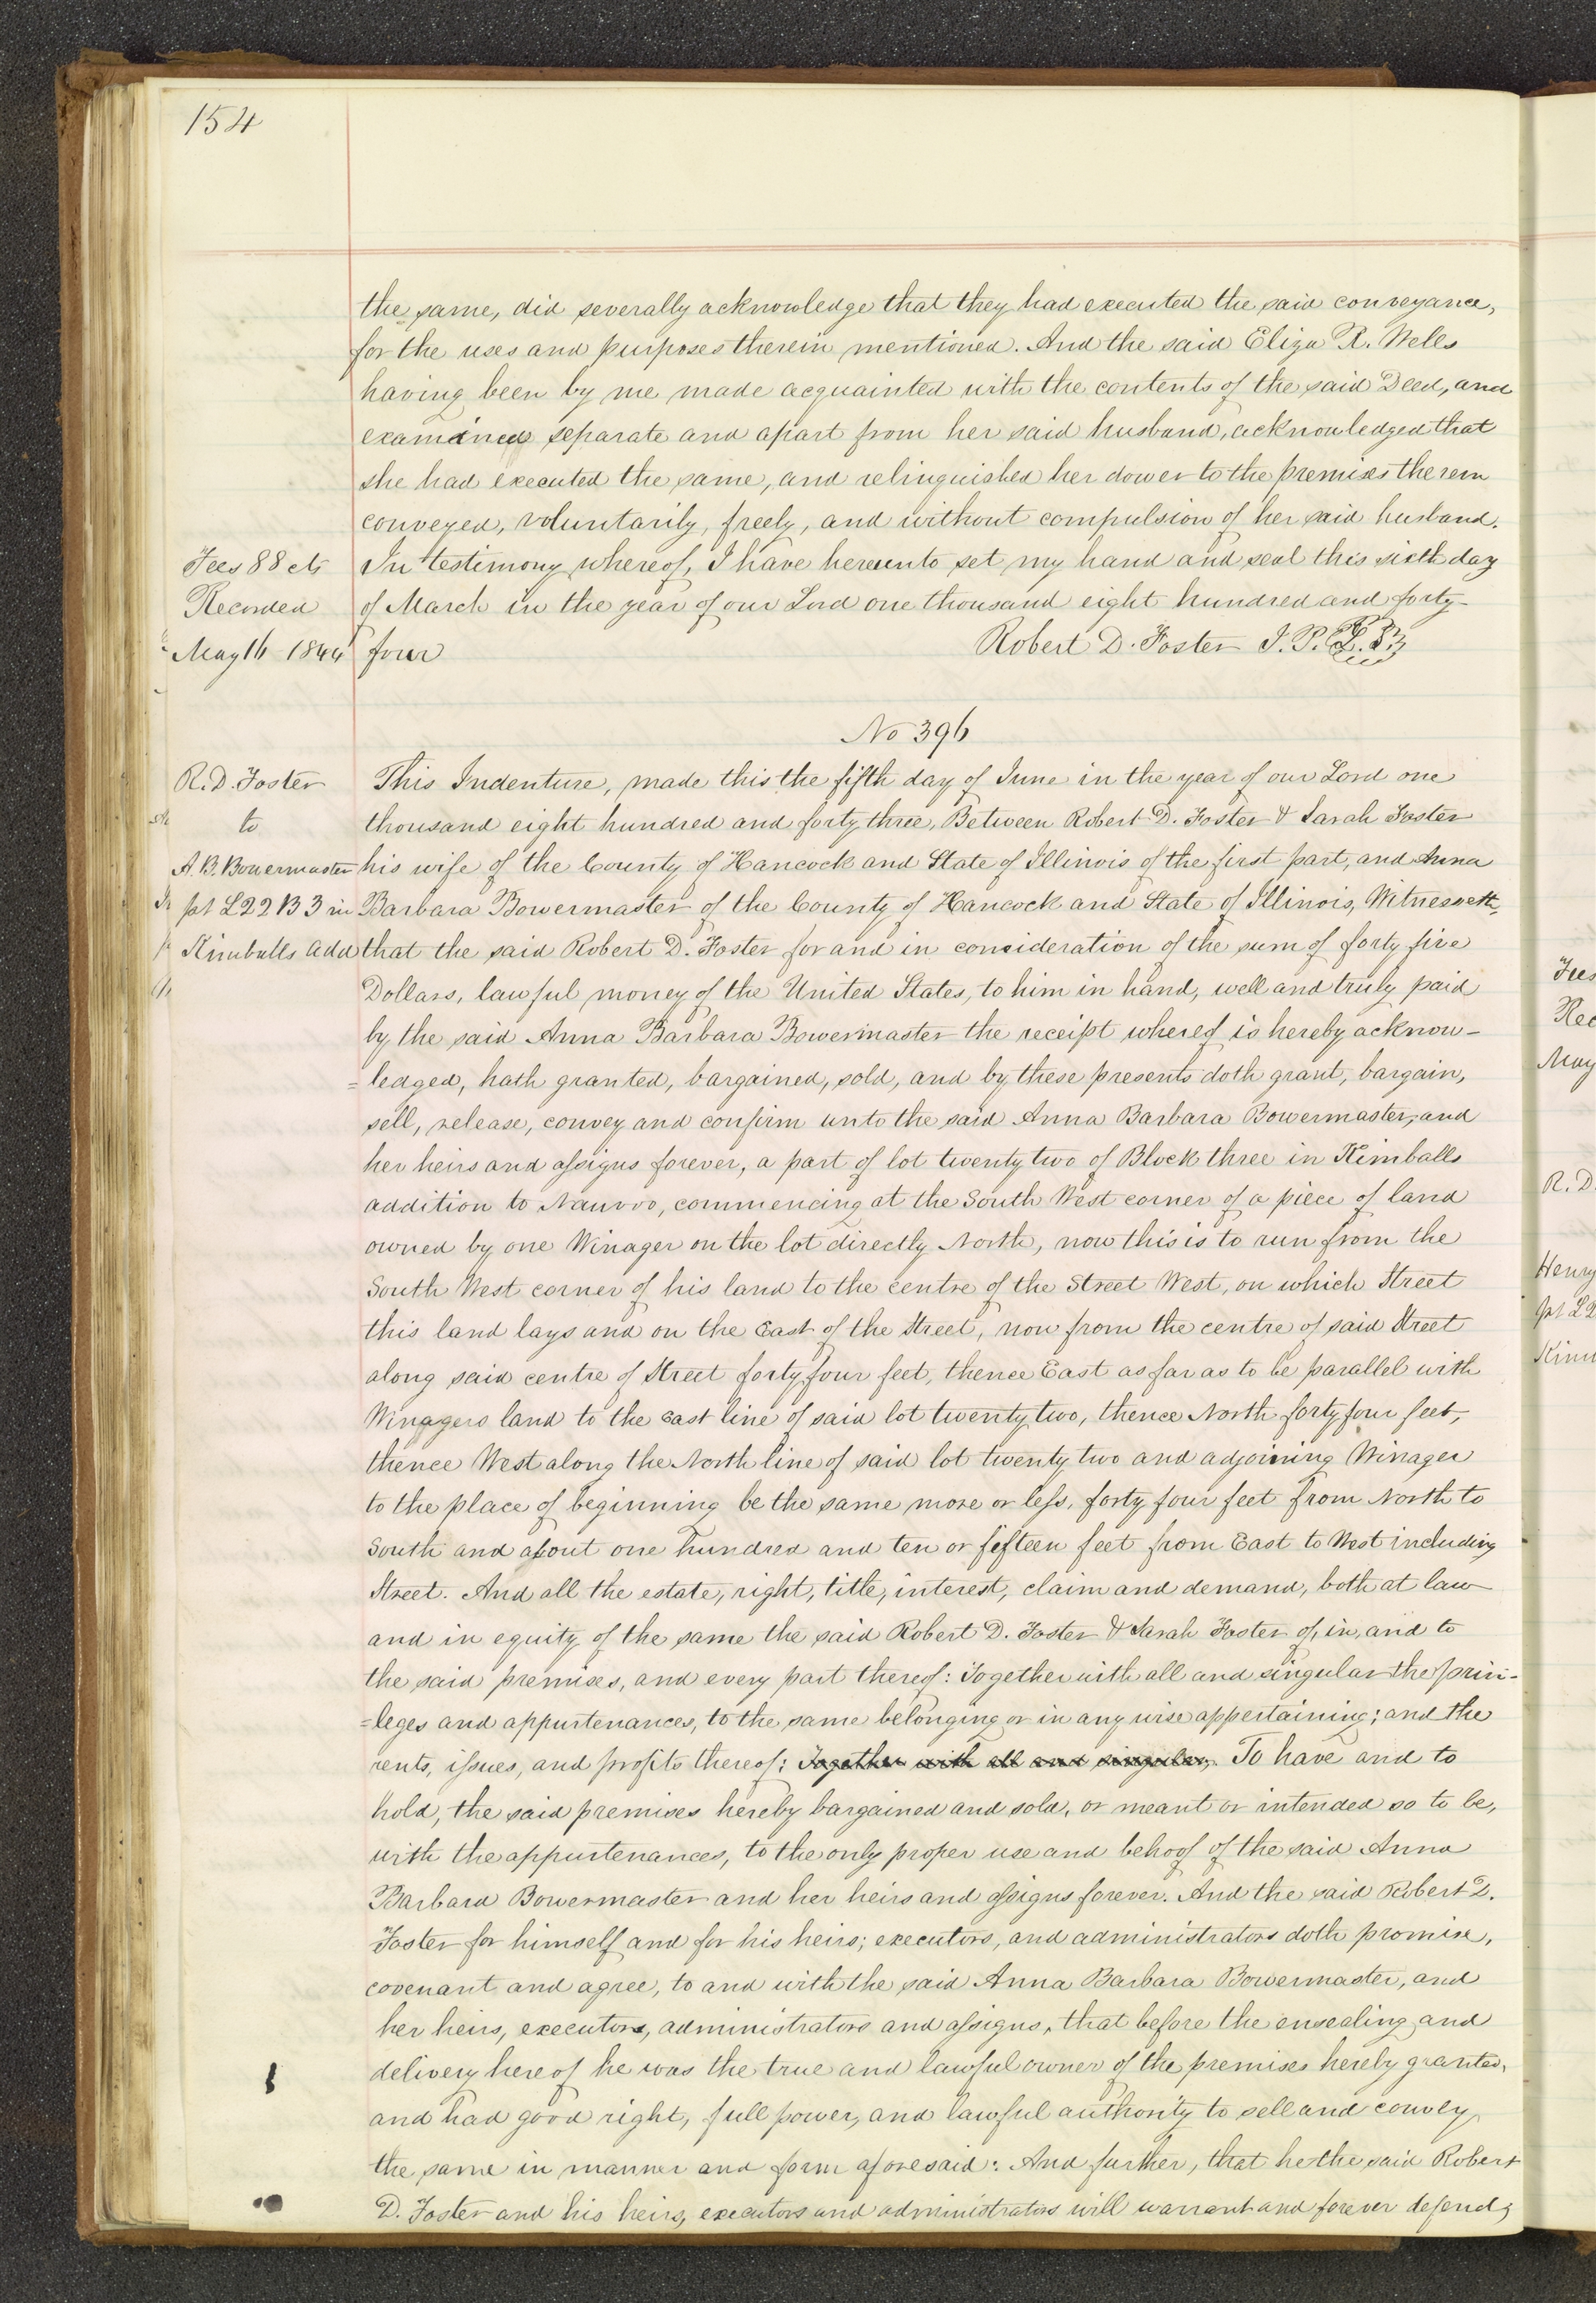 154
the same, did severally acknowledge that they had executed the said conveyance,
for the uses and purposes therein mentioned. And the said Eliza R. Wells
having been by me made acquainted with the contents of the said Deed, and
examined separate and apart from her said husband, acknowledged that
she had executed the same, and relinquished her dower to the premises therein
conveyed, voluntarily, freely, and without compulsion of her said husband.
Fees 88 cts In testimony whereof, I have hereunto set my hand and seal this sixth day
Recorded of March in the year of our Lord one thousand eight hundred and forty
May 16 1844 four Robert D. Foster J. P. L. S.
No 396
R. D. Foster This Indenture, made this the fifth day of June in the year of our Lord one
to thousand eight hundred and forty three, Between Robert D. Foster & Sarah Foster
A. B. Bowermaster his wife of the County of Hancock and State of Illinois of the first part, and Anna
pt L 22 B 3 in Barbara Bowermaster of the County of Hancock and State of Illinois, Witnesseth,
Kimballs add that the said Robert D. Foster for and in consideration of the sum of forty five
Dollars, lawful money of the United States, to him in hand, well and truly paid
by the said Anna Barbara Bowermaster the receipt whereof is hereby acknow-
=ledged, hath granted, bargained, sold, and by these presents doth grant, bargain,
sell, release, convey and confirm unto the said Anna Barbara Bowermaster, and
her heirs and assigns forever, a part of lot twenty two of Block three in Kimballs
addition to Nauvoo, commencing at the South West corner of a piece of land
owned by one Winager on the lot directly North, now this is to run from the
South West corner of his land to the centre of the Street West, on which Street
this land lays and on the East of the Street, now from the centre of said Street
along said centre of Street forty four feet, thence East as far as to be parallel with
Winagers land to the East line of said lot twenty two, thence North forty four feet,
thence West along the North line of said lot twenty two and adjoining Winager
to the place of beginning be the same more or less, forty four feet from North to
South and about one hundred and ten or fifteen feet from East to West including
Street. And all the estate, right, title, interest, claim and demand, both at law
and in equity of the same the said Robert D. Foster & Sarah Foster of, in, and to
the said premises, and every part thereof: Together with all and singular the privi-
=leges and appurtenances, to the same belonging or in any wise appertaining; and the
rents, issues, and profits thereof: Together with all and singular, To have and to
hold, the said premises hereby bargained and sold, or meant or intended so to be,
with the appurtenances, to the only proper use and behoof of the said Anna
Barbara Bowermaster and her heirs and assigns forever. And the said Robert D.
Foster for himself and for his heirs; executors, and administrators doth promise,
covenant and agree, to and with the said Anna Barbara Bowermaster, and
her heirs, executors, administrators and assigns, that before the ensealing and
delivery hereof he was the true and lawful owner of the premises hereby granted,
and had good right, full power, and lawful authority to sell and convey
the same in manner and form aforesaid: And further, that he the said Robert
D. Foster and his heirs, executors and administrators will warrant and forever defend,
Fees
Rec
May
R. D.
Henry
pt L2
Kim